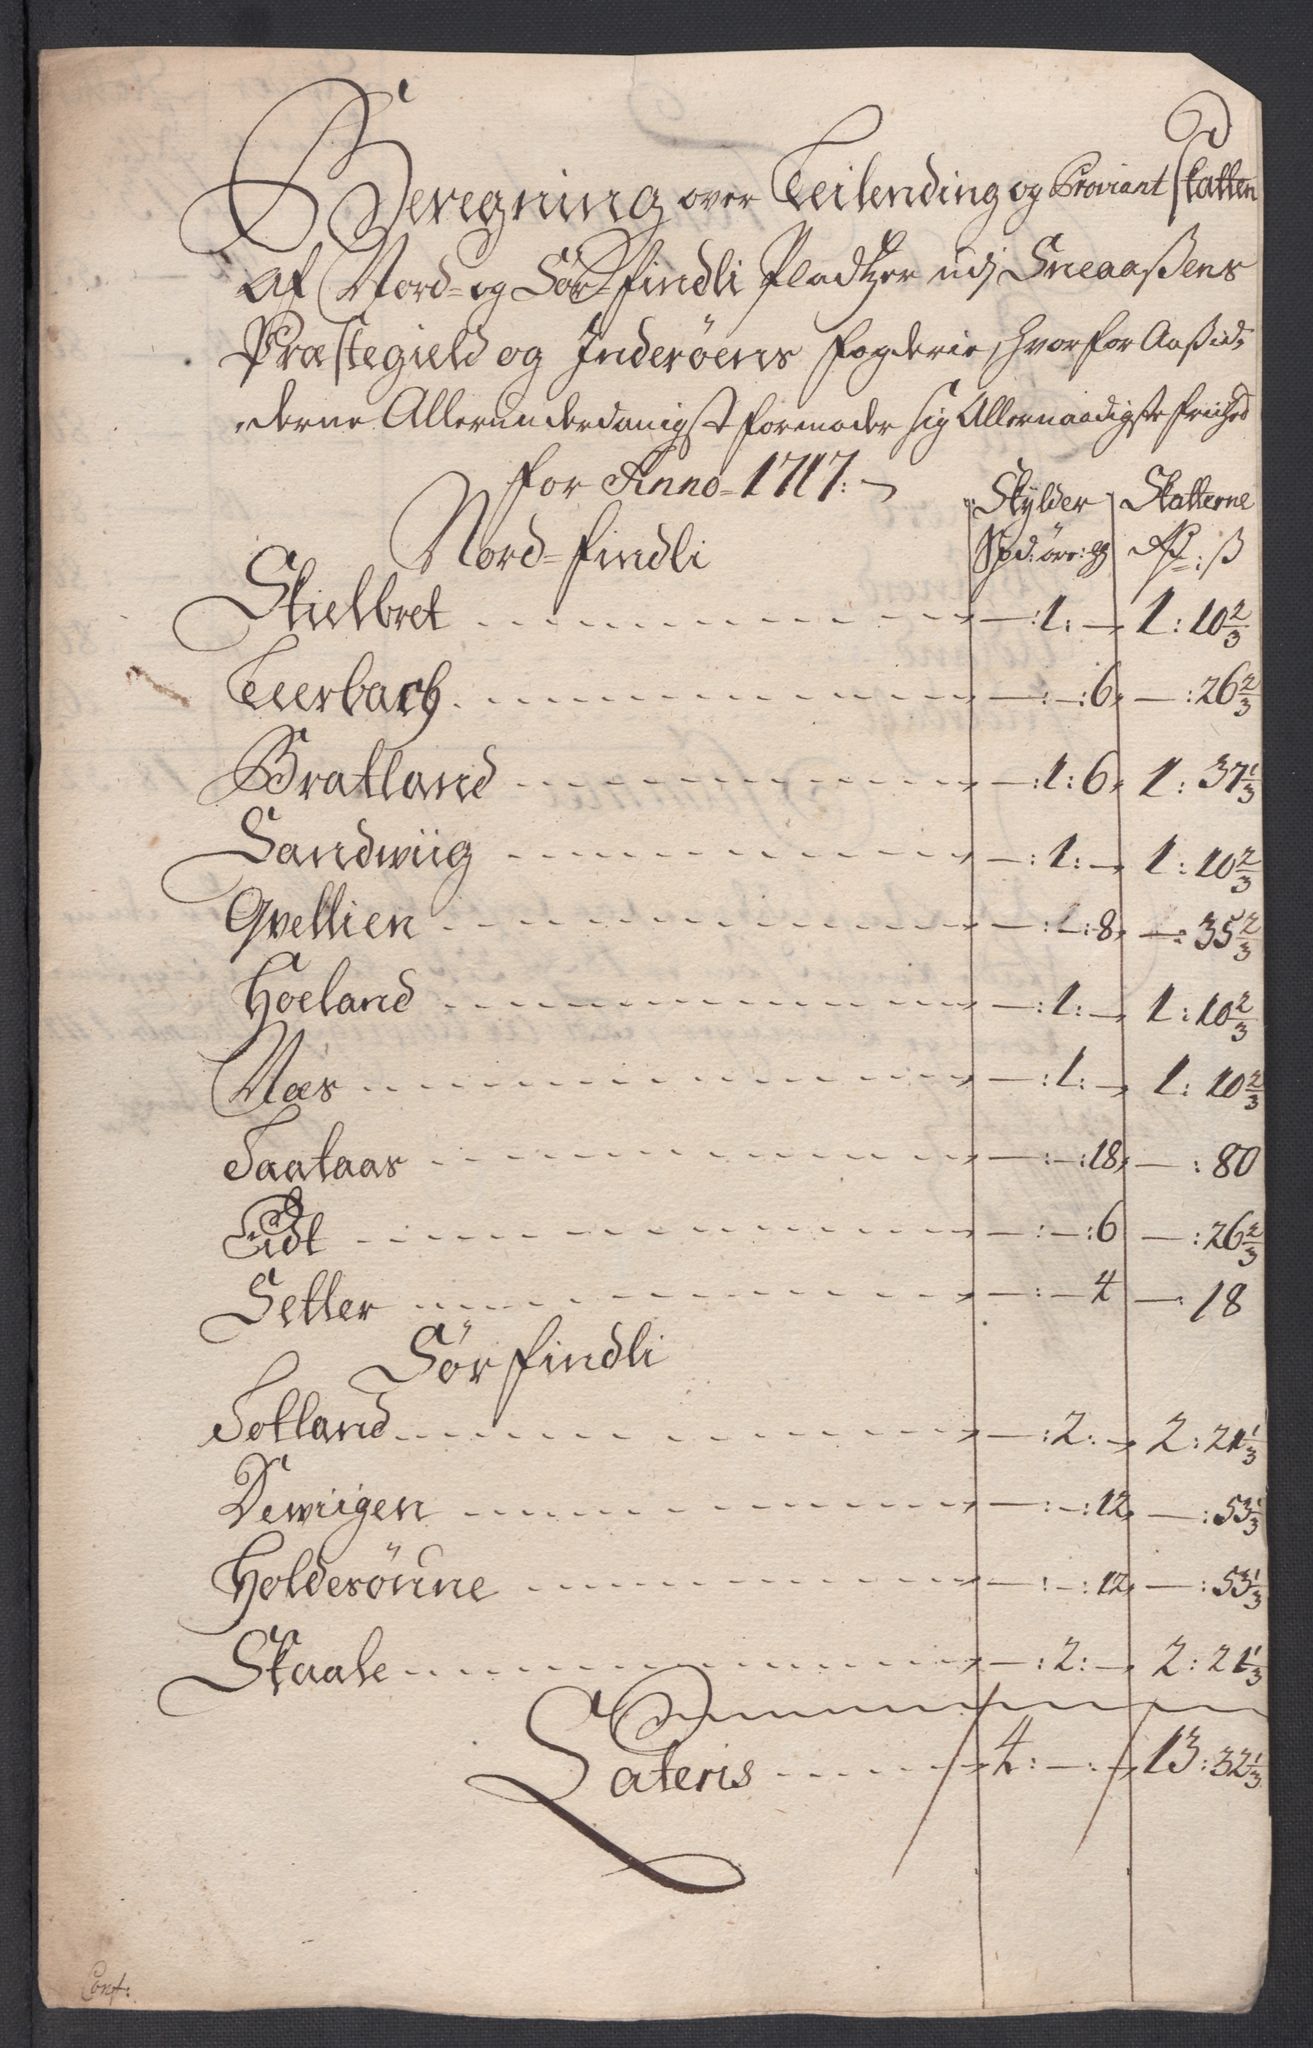 Beregning over Leilending og Proviant Skatten
af Nord- og Sør-findli Pladtzer udj Sneaaßens
Præstegield og Inderøens fogderie, hvorfor Aaßid-
derne Allerunderdanigst formoder sig Allernaadigste friihed
for Anno 1717:
Skylder Skatterne
Nord-findli Spd: øre: Rd: ß
Skielbret — : 1 : — 1 : 10 2/3
Leerbach — : — : 6 — : 26 2/3
Bratland — : 1 : 6 1 : 37 1/3
Sandwiig — : 1 : — 1 : 10 2/3
Qvellien — : — : 8 — : 35 2/3
Hoeland — : 1 : — 1 : 10 2/3
Næs — : 1 : — 1 : 10 2/3
Taataas — : — : 18 — : 80
Eidt — : — : 6 — : 26 2/3
Setter — : — 4 — : 18
Sør findli
Totland — : 2 : — 2 : 21 1/3
Dewiigen — : — : 12 — : 53 1/3
Holdesøune — : — : 12 — : 53 1/3
Skaale — : 2 : — 2 : 21 1/3
Lateris 4 : — : — 13 : 32 1/3
Conf: